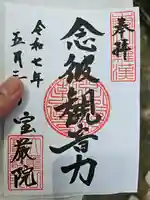 奉拝
念彼観音力
令和七年
五月二
宝厳院